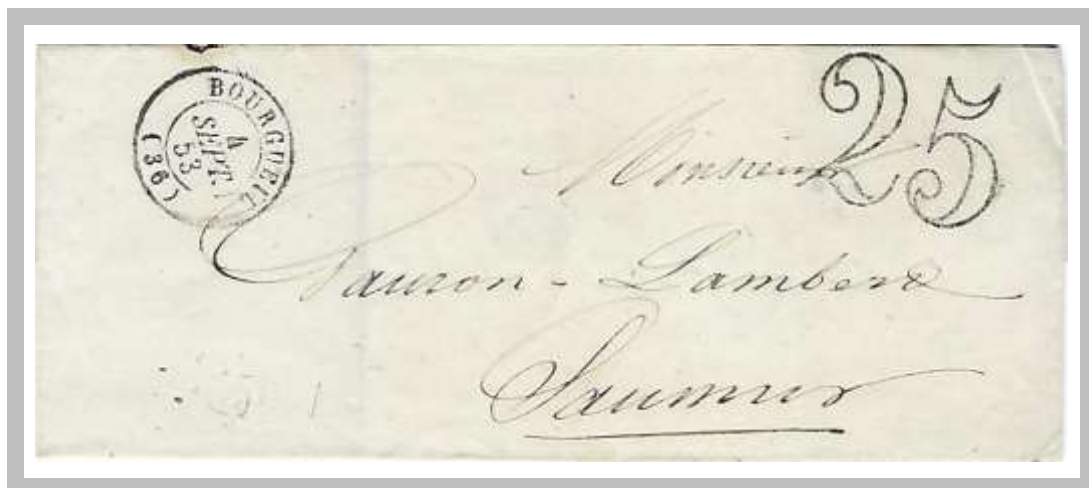 BOURGUEIL
4
SEPT.
53
(36)
25
Monsieur
Pauron - Lambert
Saumur